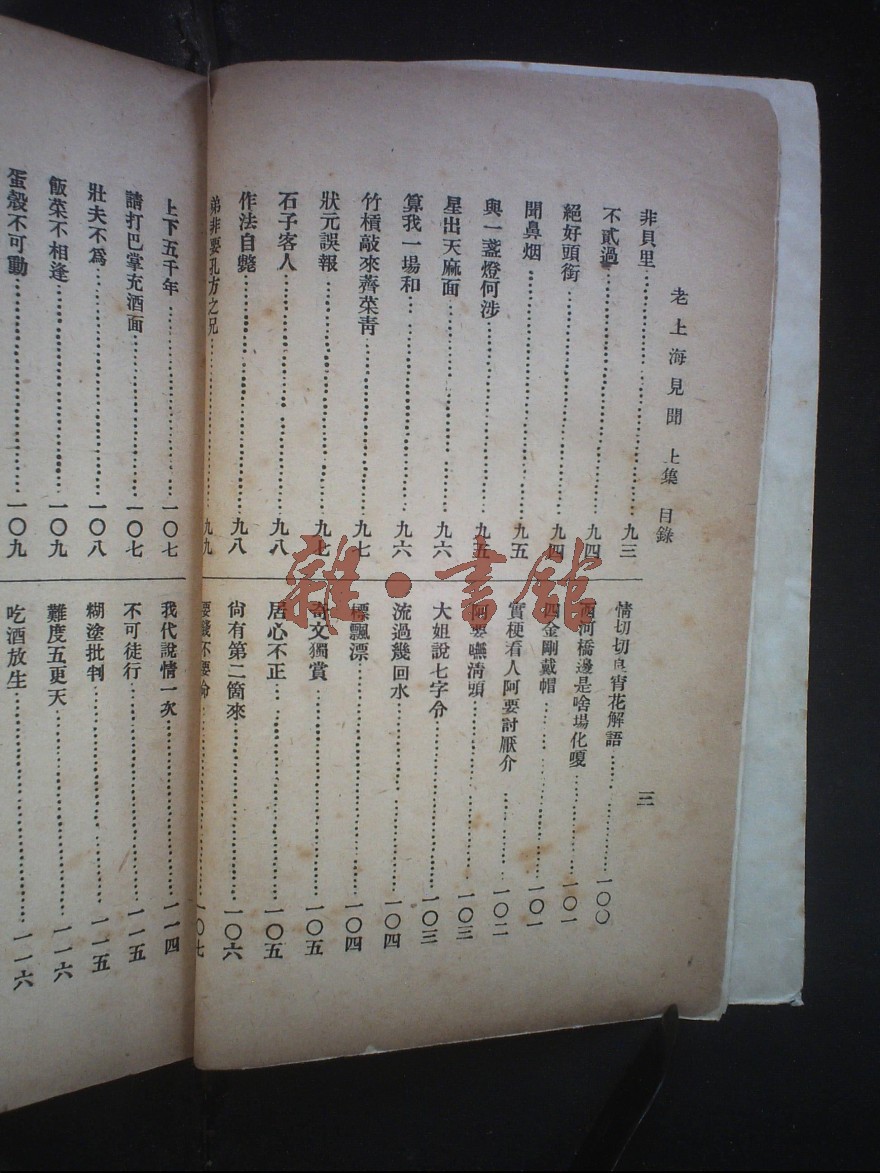 老上海見聞 上集 目錄
三
非貝里……九三
不貳過……九四
絕好頭銜……九四
聞鼻烟……九五
與一盞燈何涉……九五
星出天麻面……九六
算我一場和……九六
竹槓敲來薺菜靑……九七
狀元誤報……九七
石子客人……九八
作法自斃……九八
弟非要孔方之兄……九九
情切切良宵花解語……一〇〇
西河橋邊是啥場化嗄……一〇一
四金剛戴帽……一〇一
實梗看人阿要討厭介……一〇二
阿要嘸淸頭……一〇三
大姐說七字令……一〇三
流過幾回水……一〇四
標飄漂……一〇四
奇文獨賞……一〇五
居心不正……一〇五
尙有第二箇來……一〇六
要錢不要命……一〇七
上下五千年……一〇七
請打巴掌充酒面……一〇七
壯夫不爲……一〇八
飯菜不相逢……一〇九
蛋殼不可動……一〇九
我代說情一次……一一四
不可徒行……一一五
糊塗批判……一一五
難度五更天……一一六
吃酒放生……一一六
雜·書館